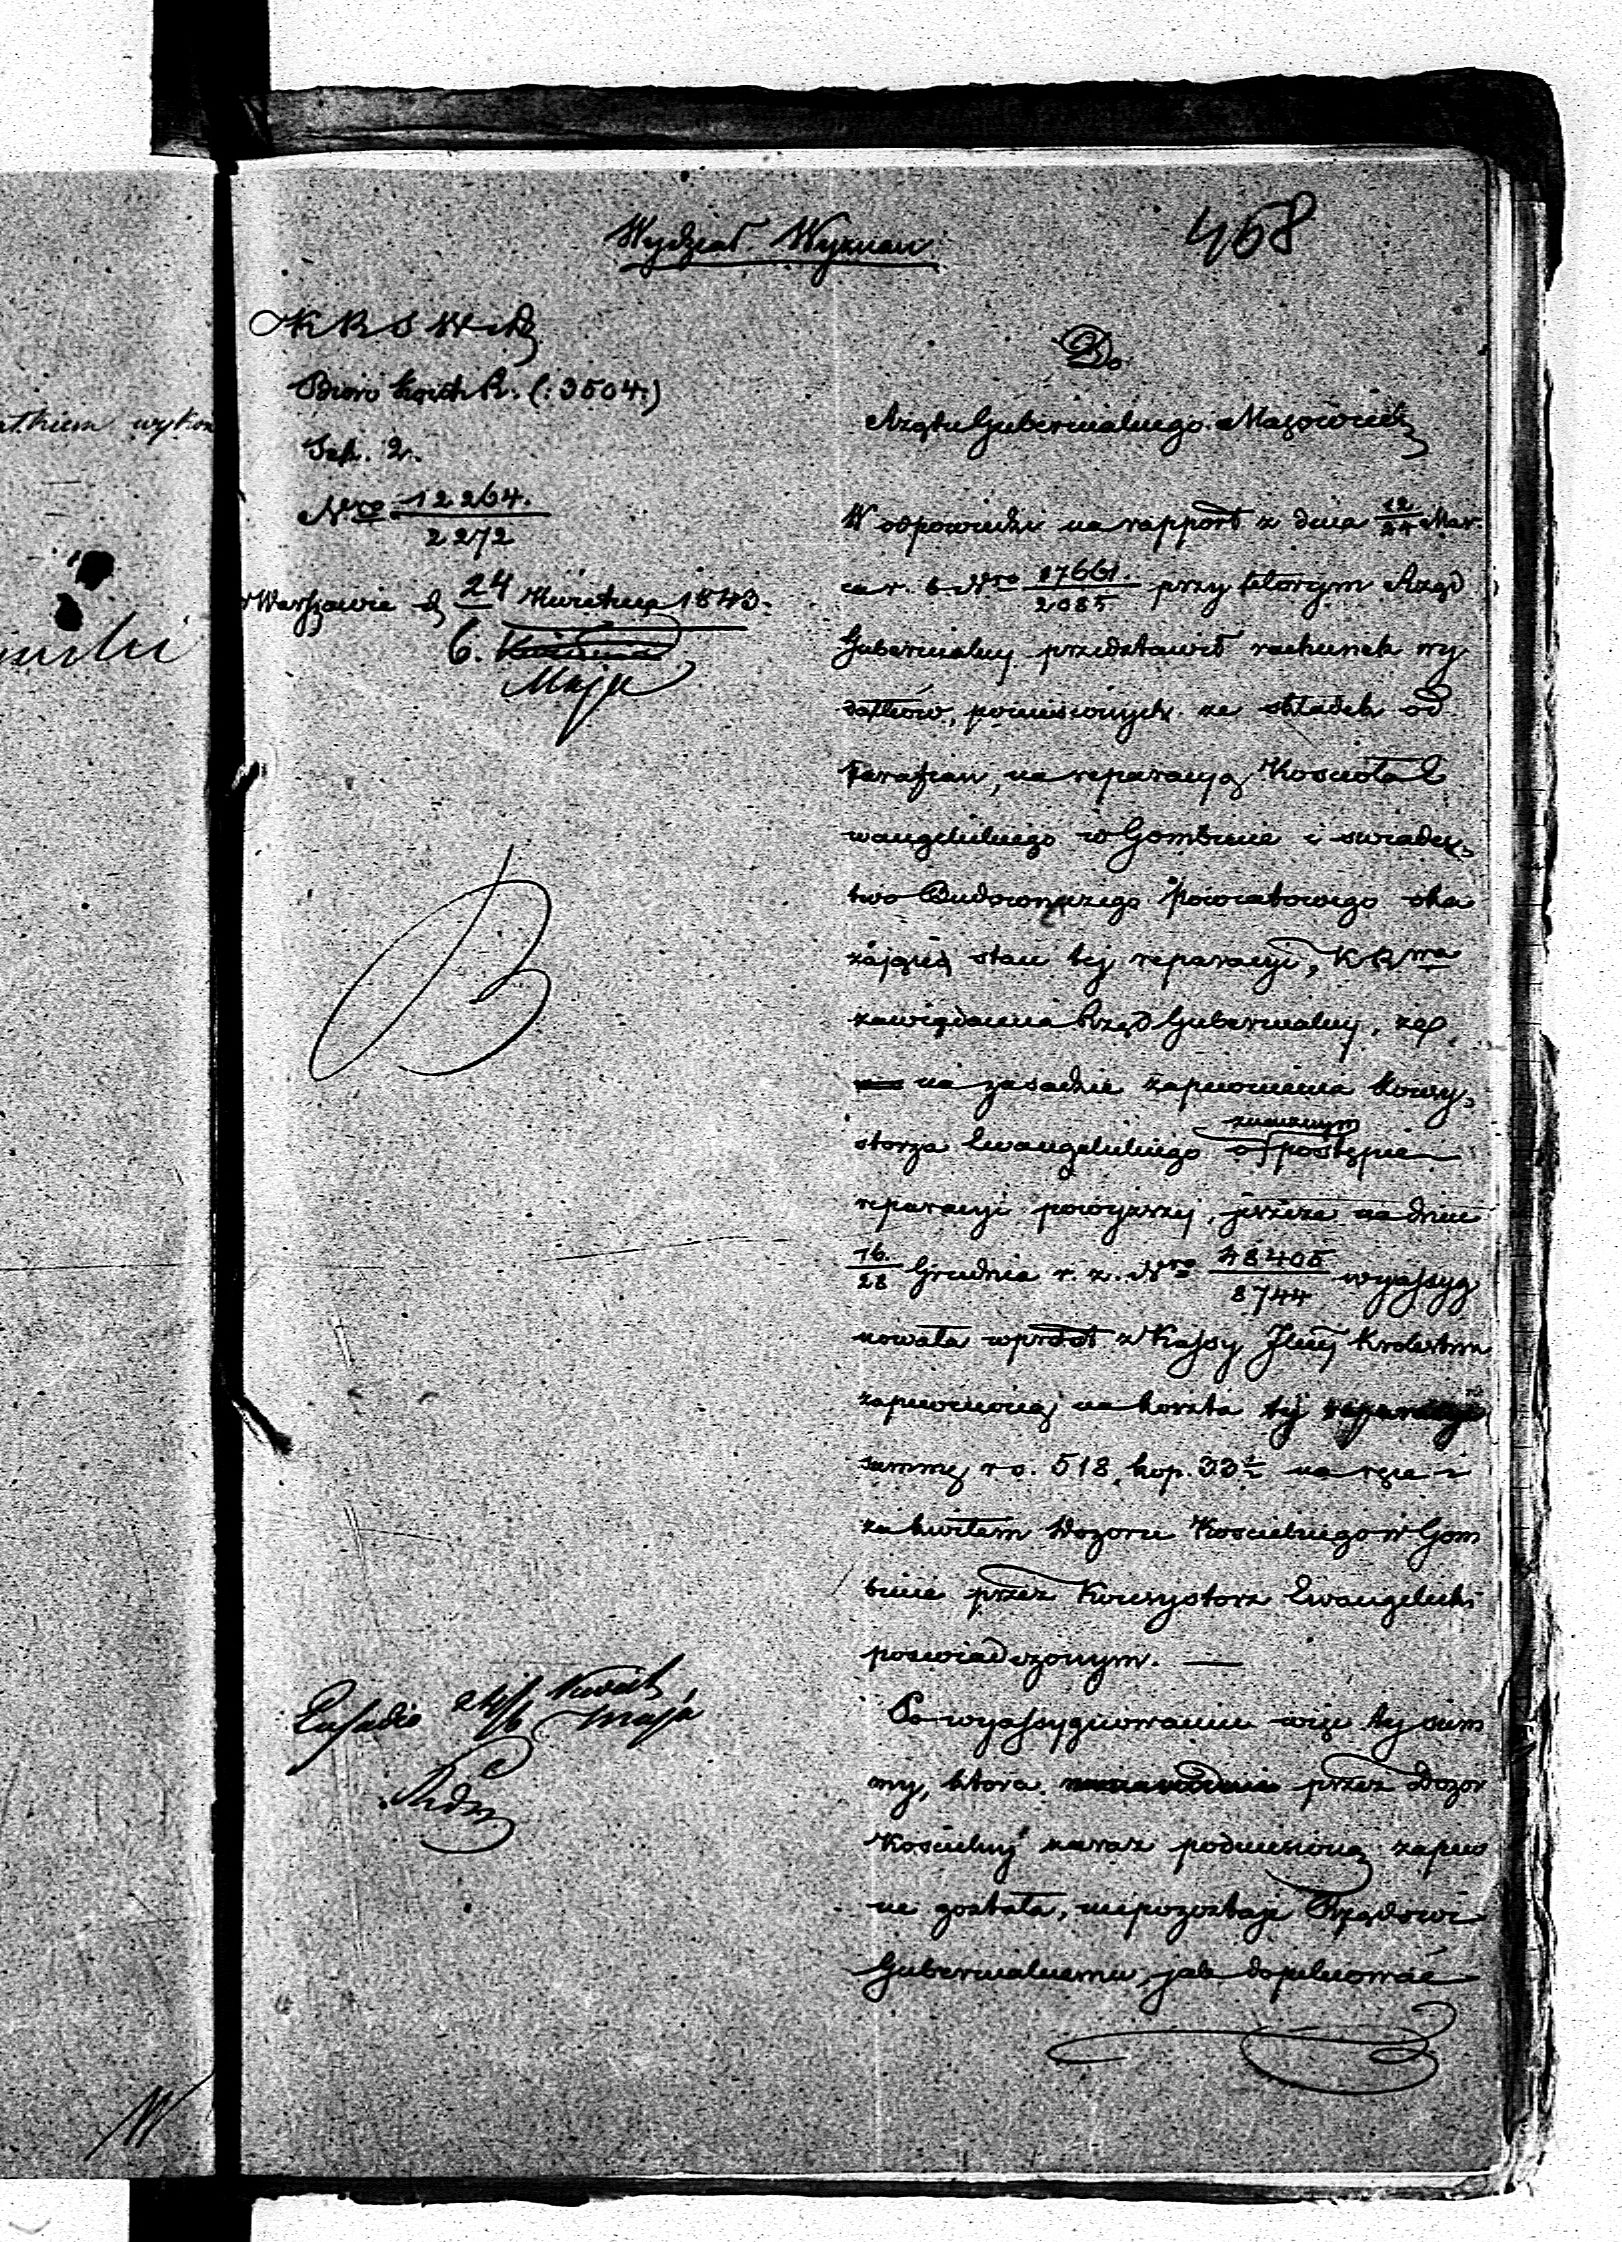 468
Wydział Wyznań
KRSW i D
Biuro (: 3504:)
Sek. 2.
Nro 12264. / 2272
w Warszawie d 24 Kwietnia 1843.
6. Kwietnia
Maja
Do
Rządu Gubernialnego Mazowieck
W odpowiedzi na rapport z dnia 12/24 Mar
ca r. b Nro 17661. / 2085 przy którym Rząd
Gubernialny przedstawił rachunek wy
datków, poniesionych ze składek od
Parafian, na reparacyą Kościoła E
wangelickiego w Gombinie i świadec,
two Budowniczego Powiatowego oka
zujące stan tej reparacyi, K R wa
zawiadamia Rząd Gubernialny, że
na zasadzie zapewnienia Konsy,
storza Ewangelickiego o znacznym postępie
reparacyi powyższej, jeszcze na dniu
16/28 Grudnia r. z. Nro 48405 / 8744 wyassyg
nowała wprost z Kassy Głnej Królestwa
zapewnioną na koszta tej reparacyi
summę rs. 518, kop. 33½ na ręce i
za kwitem Dozoru Kościelnego w Gom
binie przez Konsystorz Ewangelicki
poświadczonym. —
Po wyassygnowaniu więc tej sum
my, która przez Dozór
Kościelny zaraz podniesioną zapew
ne została, niepozostaje Rządowi
Gubernialnemu, jak dopilnować
24/6 Kwiet
Maja
athiem wykon